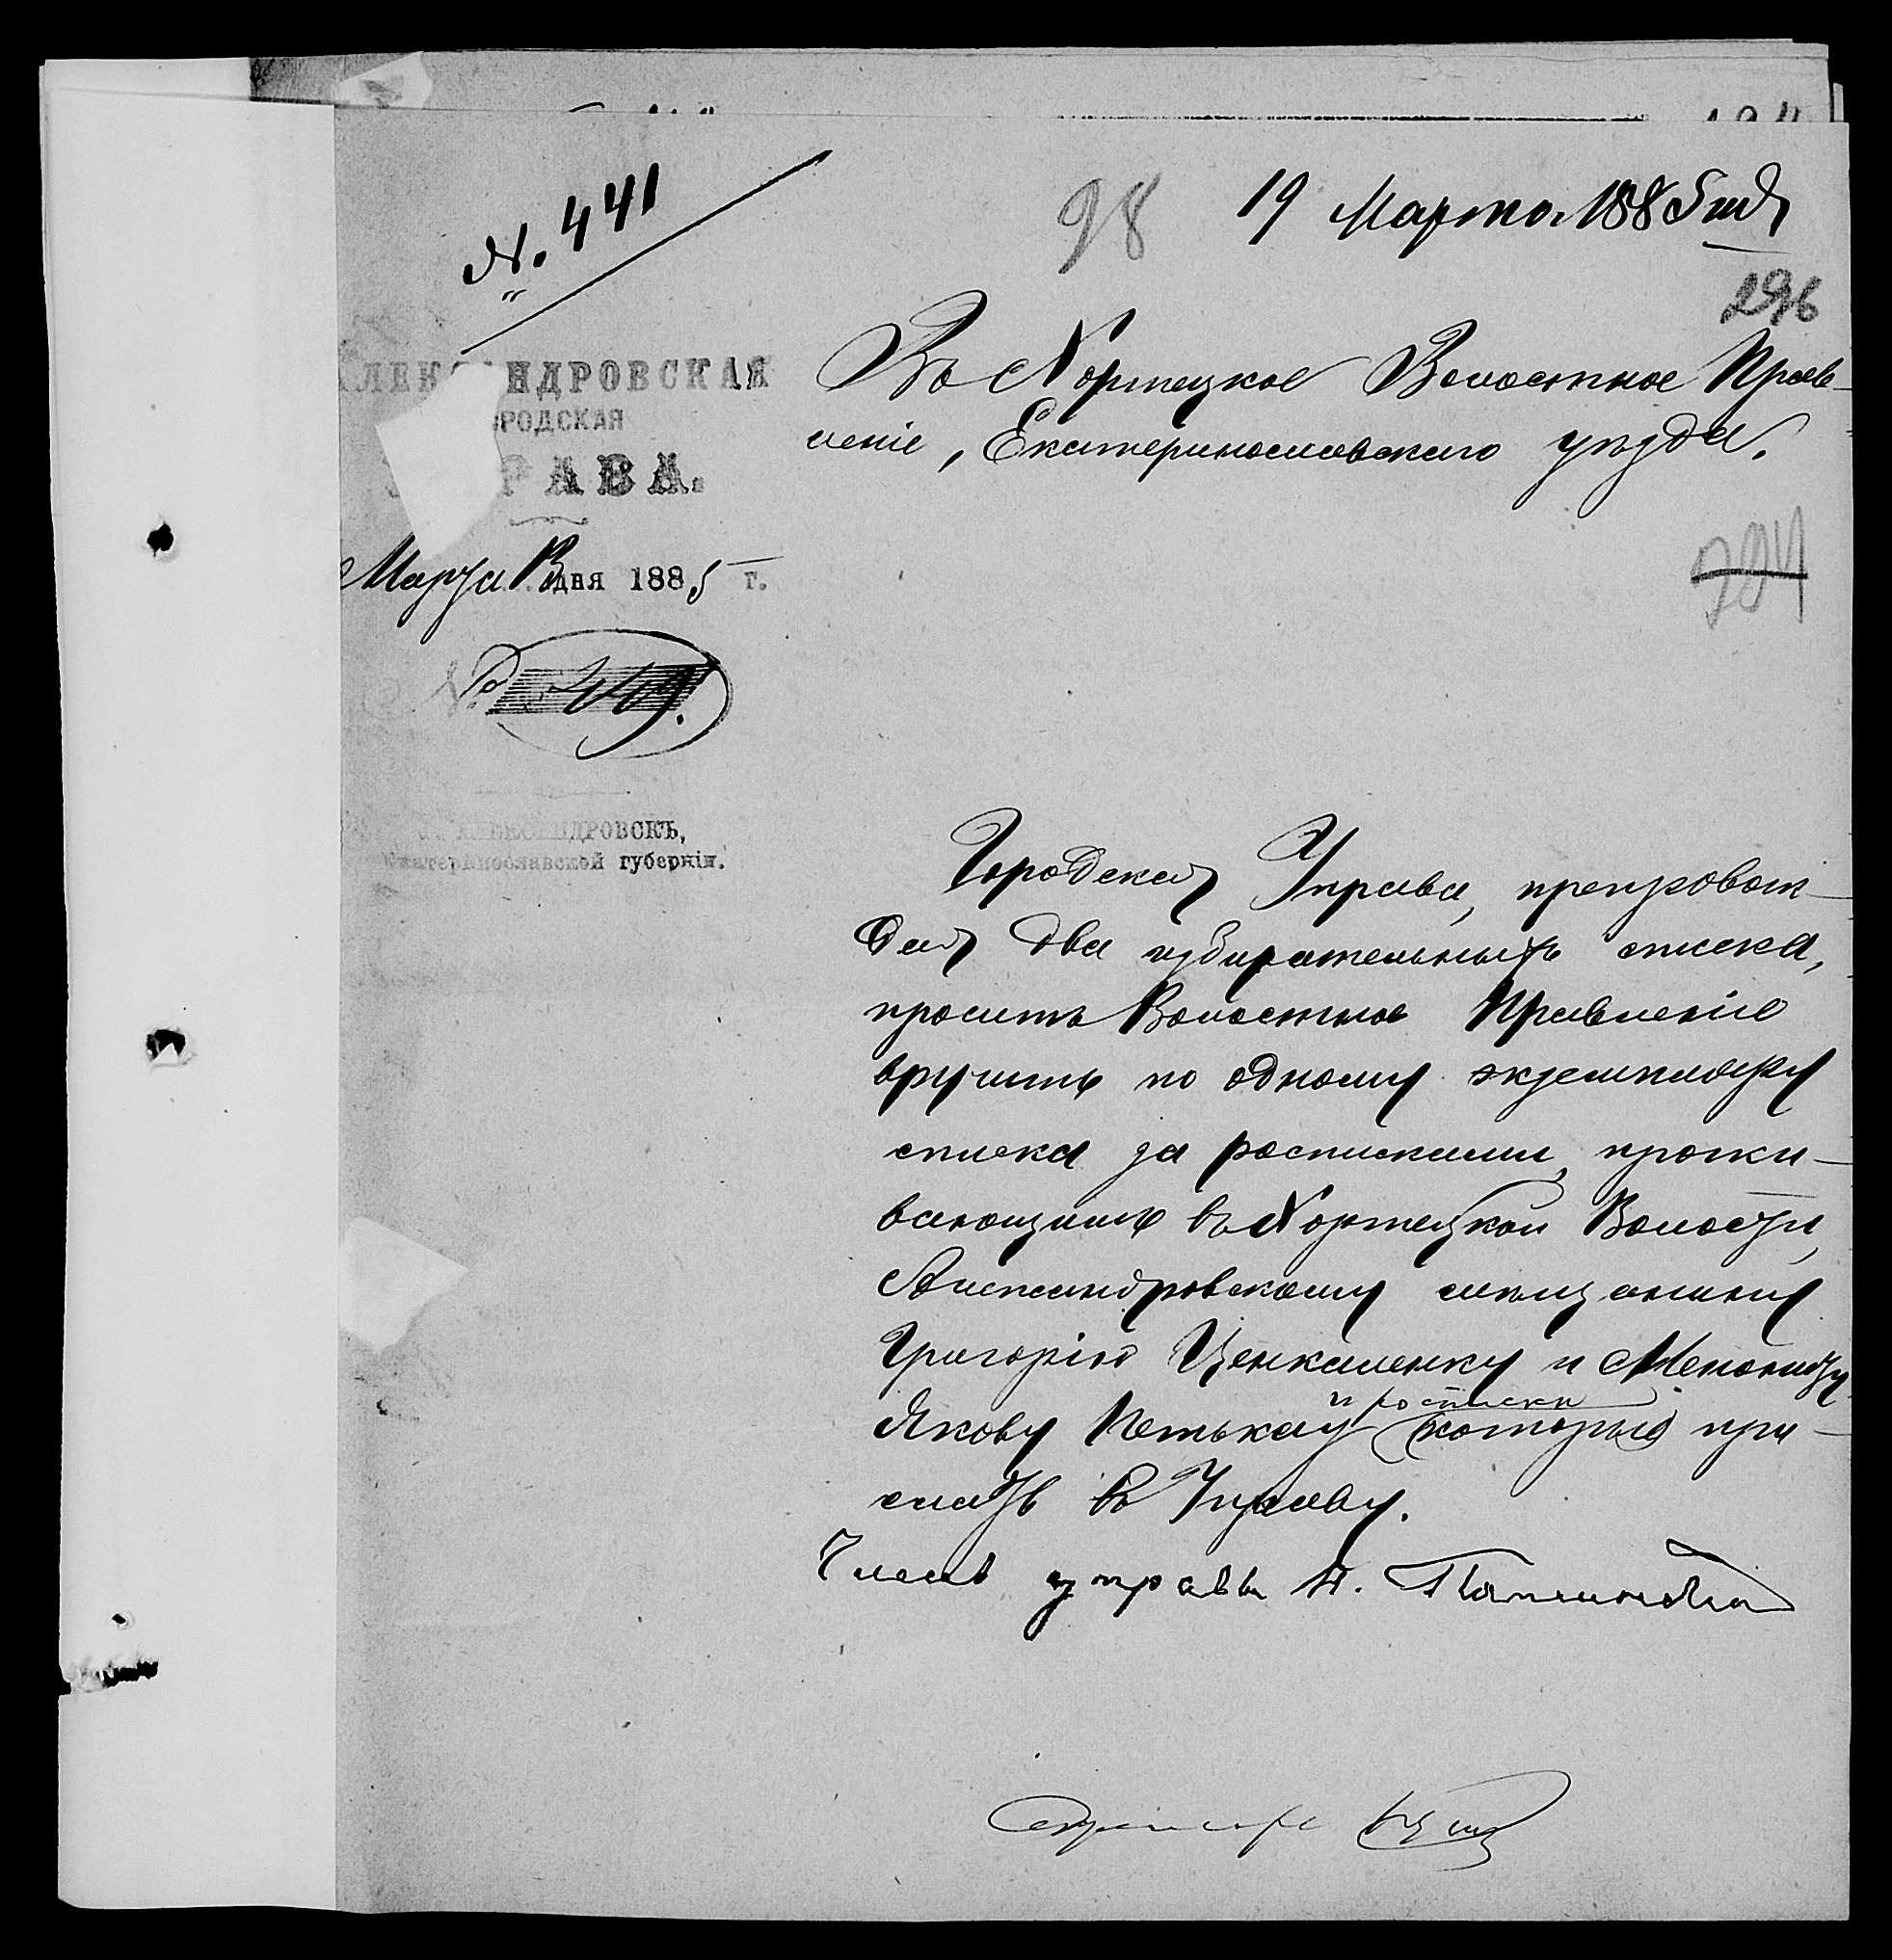 №. 441
98
19 Марта 1885 года
296
АЛЕКСАНДРОВСКАЯ
ГОРОДСКАЯ
УПРАВА.
Марта 13 дня 1885 г.
№ 449.
АЛЕКСАНДРОВСКЪ,
Екатеринославской губерніи.
Въ Хортецкое Волостное Прав-
леніе, Екатеринославскаго уѣзда.
294
Городская Управа, препровож-
дая два избирательныхъ списка,
проситъ Волостное Правленіе
вручить по одному экземпляру
списка за росписками, прожи-
вающимъ въ Хортецкой Волости,
Александровскому мѣщанину
Григорію Ценкаленку и Менониту
Якову Петькау и росписки которые при-
слать въ Управу.
Членъ управы
Секретарь